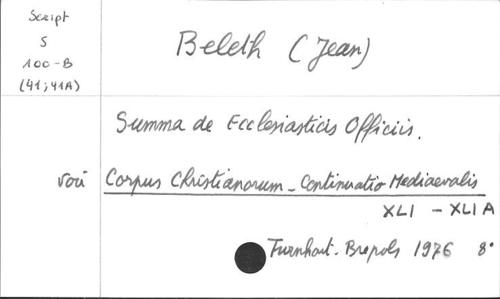 Script
S
100-B
(41; 41A)
Beleth (Jean)
Summa de Ecclesiasticis Officiis.
voir Corpus Christianorum - Continuatio Mediaevalis
XLI - XLI A
Turnhout. Brepols 1976 8°